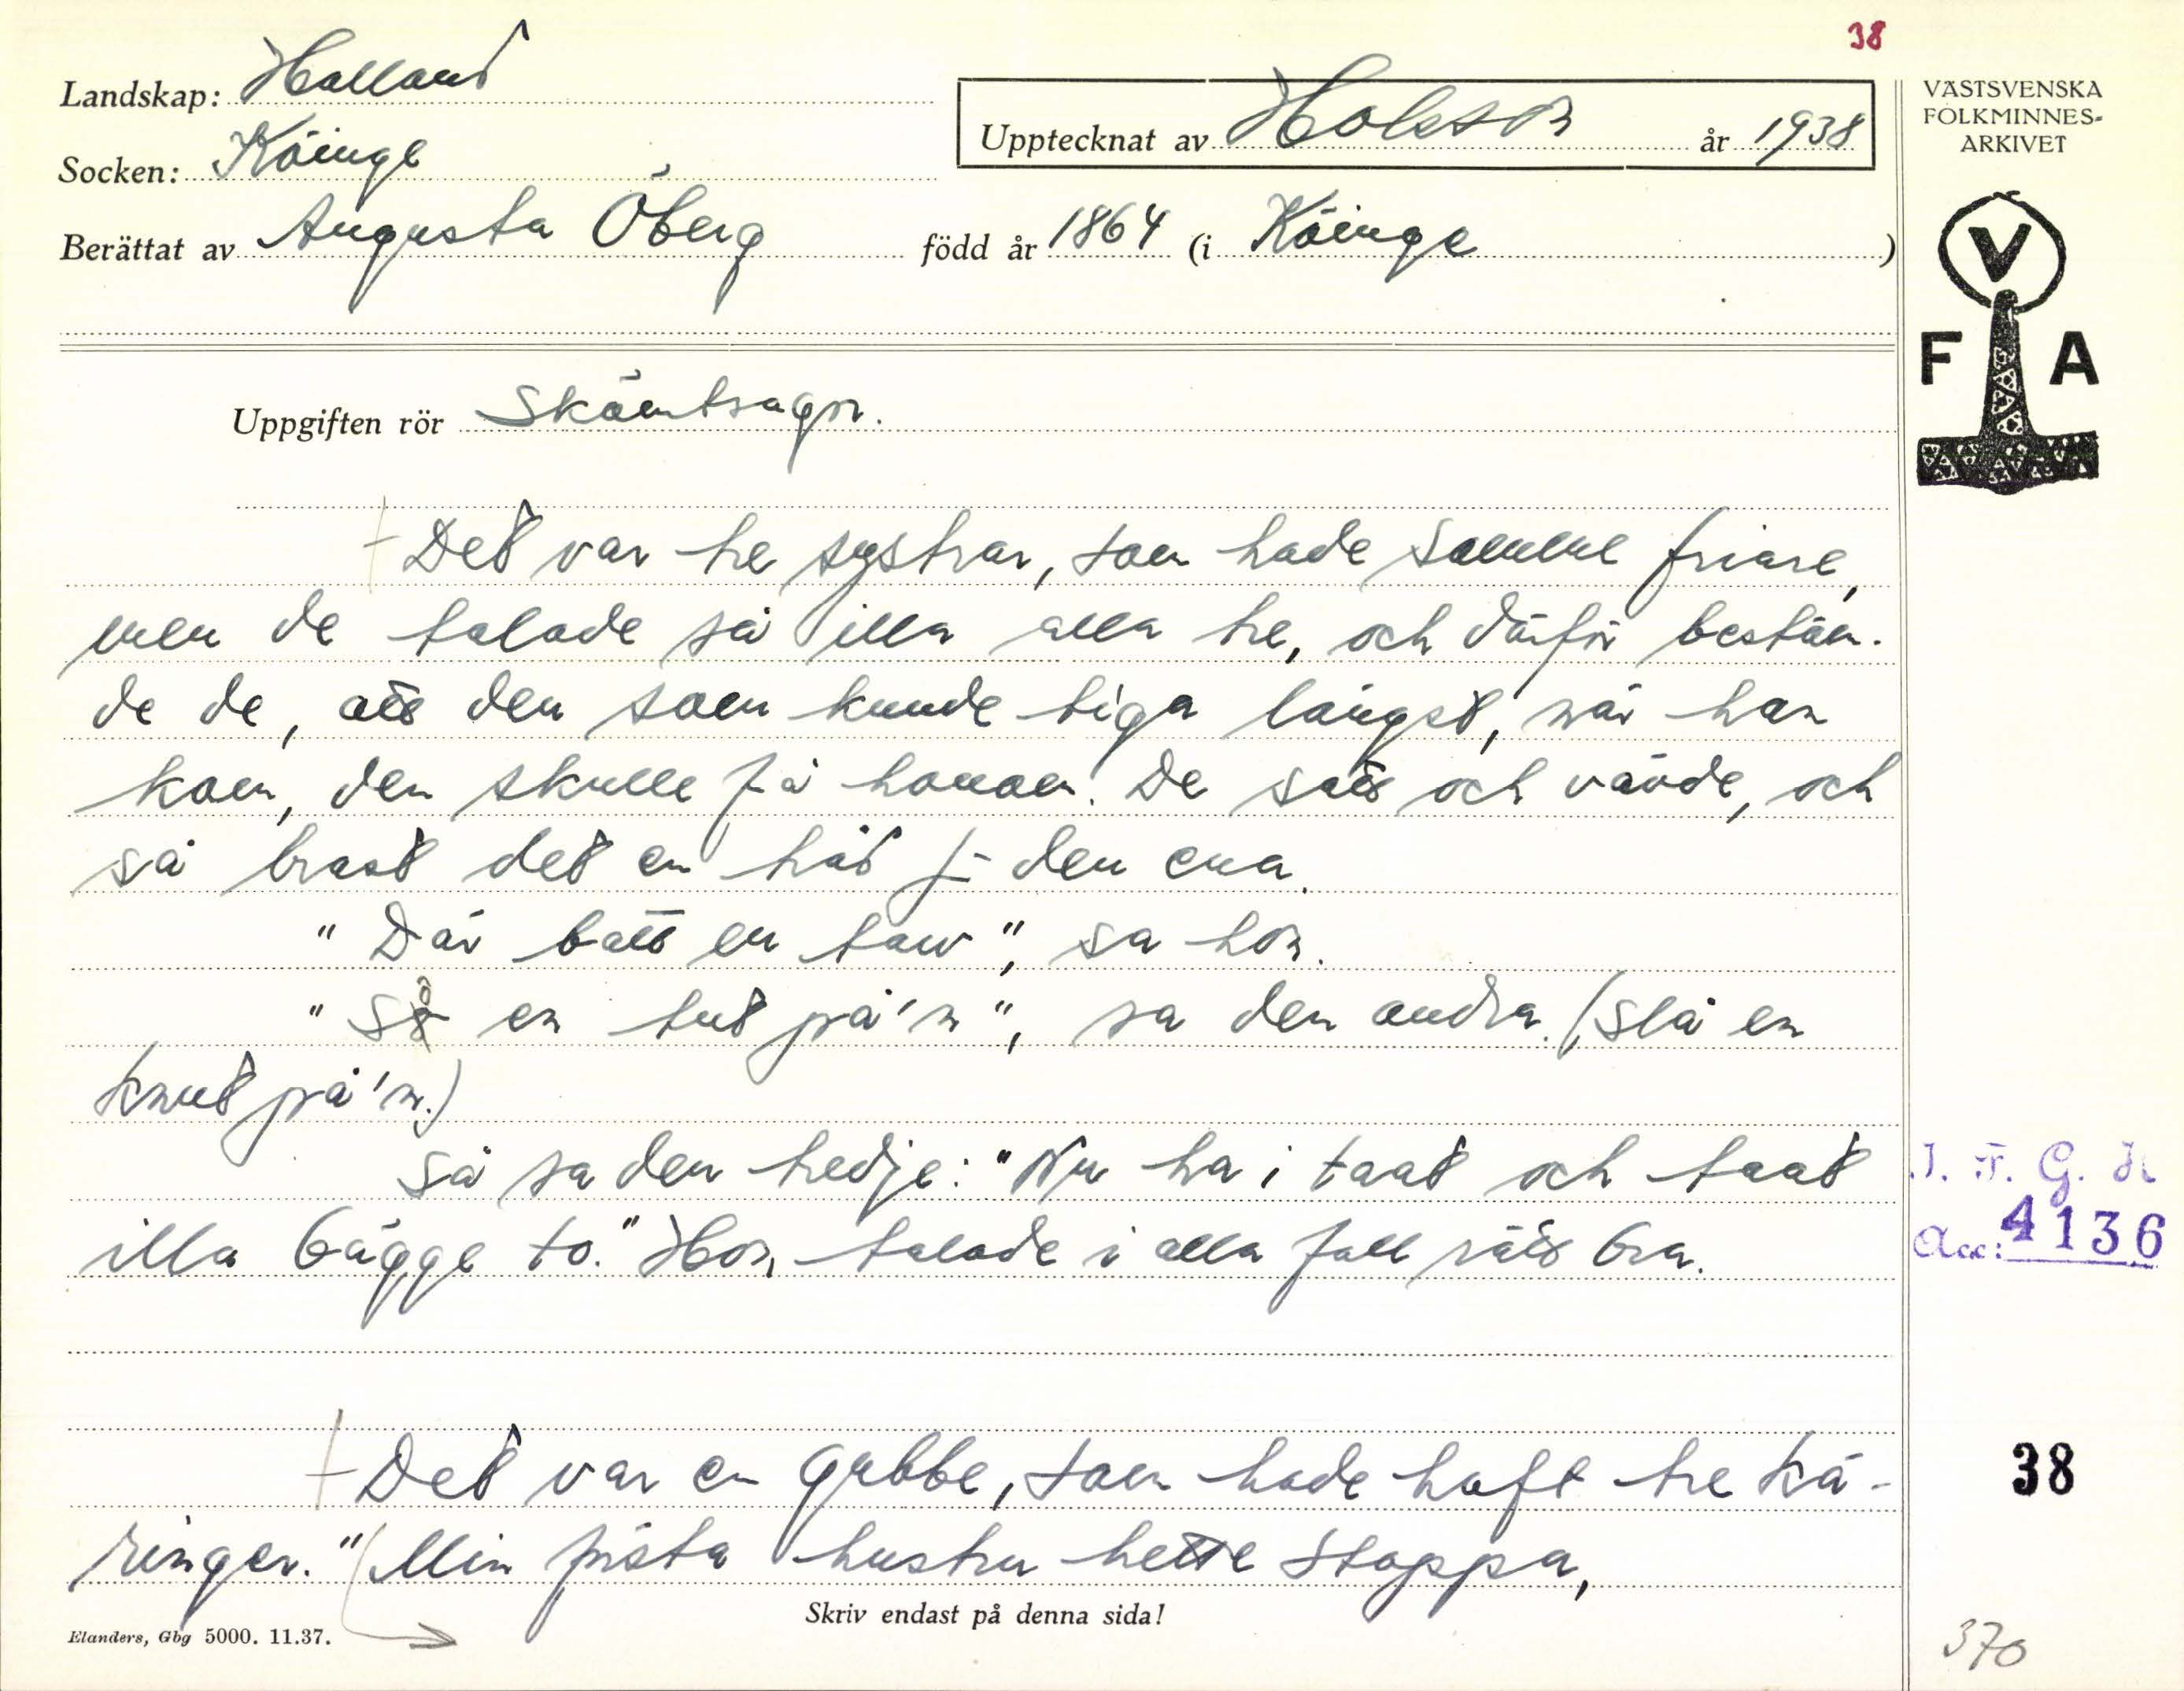 38
Landskap: Halland
Socken: Köinge
Upptecknat av Holsson år 1938
Berättat av Augusta Öberg född år 1864 (i Köinge)
VÄSTSVENSKA
FOLKMINNES-
ARKIVET
V
F A
Uppgiften rör Skämtsagn.
Det var tre systrar, som hade samme friare,
men de talade så illa alla tre, och därför bestäm-
de de, att den som kunde tiga längst, när han
kom, den skulle få honom. De satt och vävde, och
så brast det en tråd f- den ena.
"Där batt en taw", sa hon.
"Så en tut på'n", sa den andra. (Slå en
knut på'n.)
Så sa den tredje: "Nu ha i taat och taat
illa bägge to." Hon talade i alla fall rätt bra.
I. F. G. H
Acc: 4136
Det var en gubbe, som hade haft tre kä-
ringer. "Min första hustru hette Stoppa,
38
Skriv endast på denna sida!
Elanders, Gbg 5000. 11.37.
370